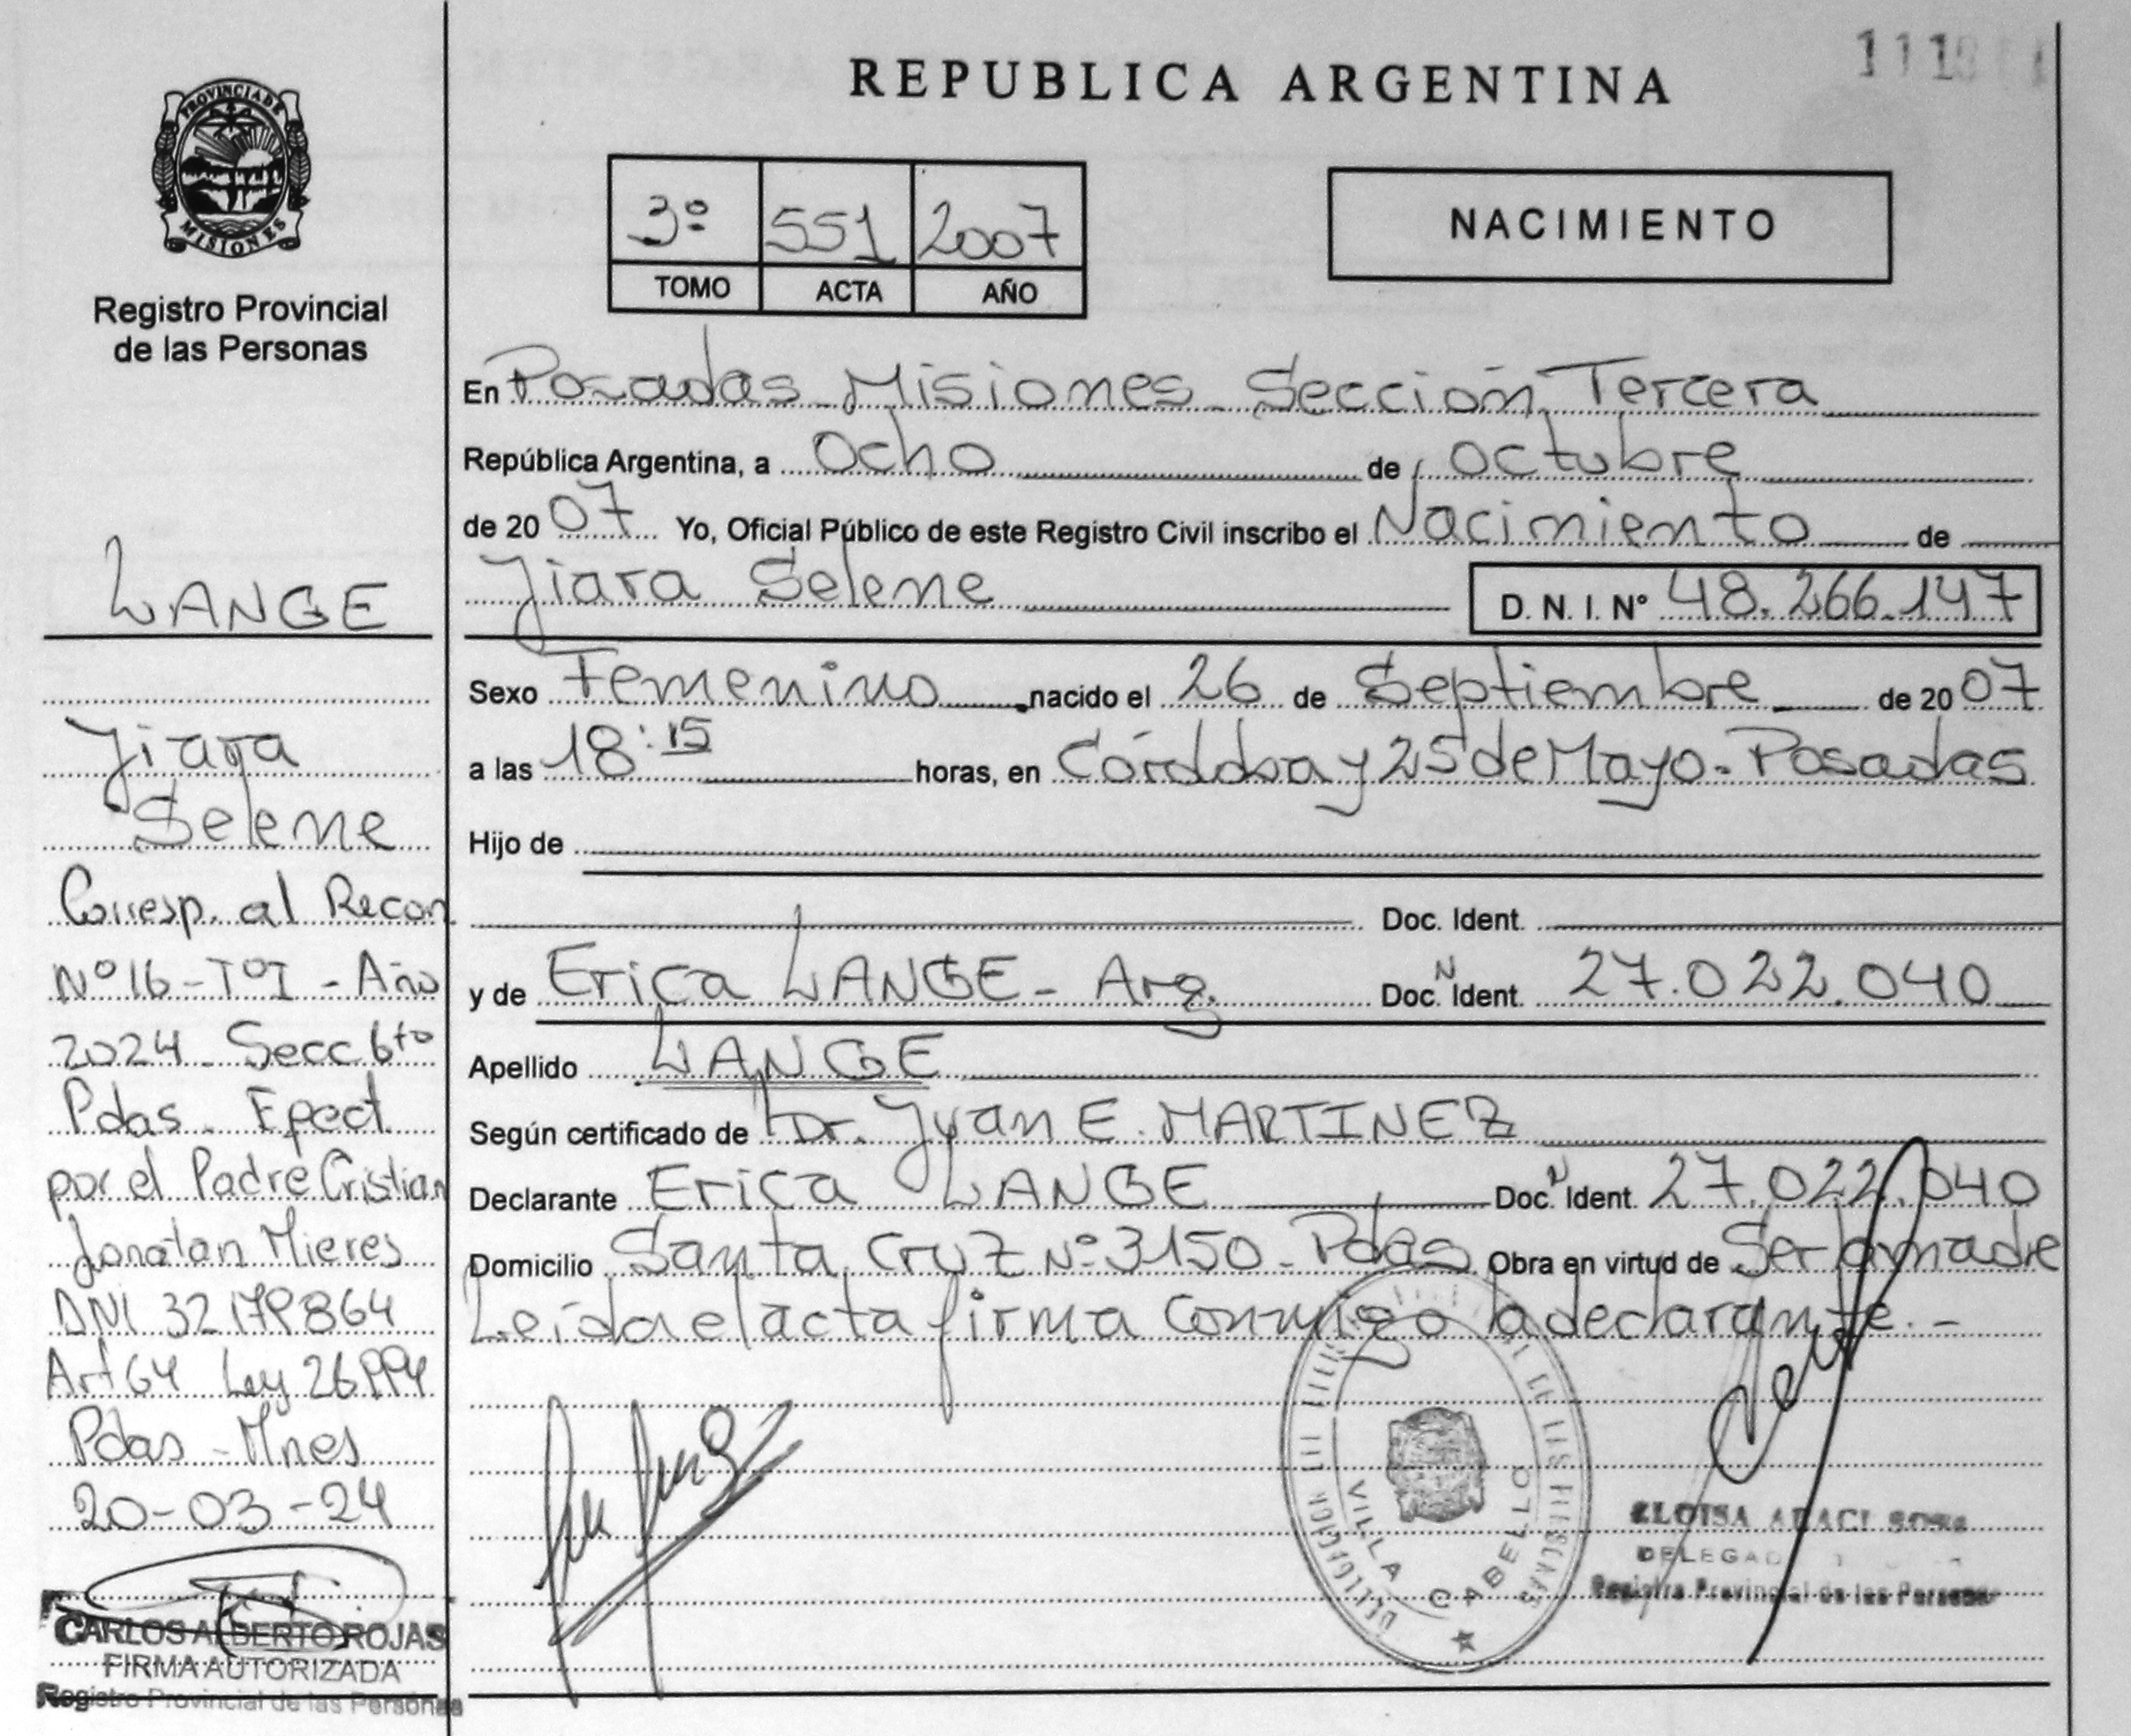 REPUBLICA ARGENTINA
PROVINCIA DE
MISIONES
Registro Provincial
de las Personas
3º 551 2007
TOMO ACTA AÑO
NACIMIENTO
En Posadas - Misiones - Sección Tercera
República Argentina, a Ocho de octubre
de 2007 Yo, Oficial Público de este Registro Civil inscribo el Nacimiento de
Jiara Selene D. N. I. Nº 48.266.147
Sexo Femenino nacido el 26 de Septiembre de 2007
a las 18:15 horas, en Córdoba y 25 de Mayo - Posadas
Hijo de
Doc. Ident.
y de Erica LANGE - Arg. Doc. N Ident. 27.022.040
Apellido LANGE
Según certificado de Dr. Juan E. MARTINEZ
Declarante Erica LANGE Doc. N Ident. 27.022.040
Domicilio Santa Cruz Nº 3150 - Pdas Obra en virtud de Ser la madre
Leída el acta firma conmigo la declarante. -
LANGE
Jiara
Selene
Corresp. al Recon
Nº 16 - Tº I - Año
2024 - Secc 6to
Pdas. Efect.
por el Padre Cristian
Jonatan Mieres
DNI 32179864
Art 64 Ley 26994
Pdas - Mnes
20-03-24
CARLOS ALBERTO ROJAS
FIRMA AUTORIZADA
Registro Provincial de las Personas
VILLA CABELLO
ELOISA
Registro Provincial de las Personas